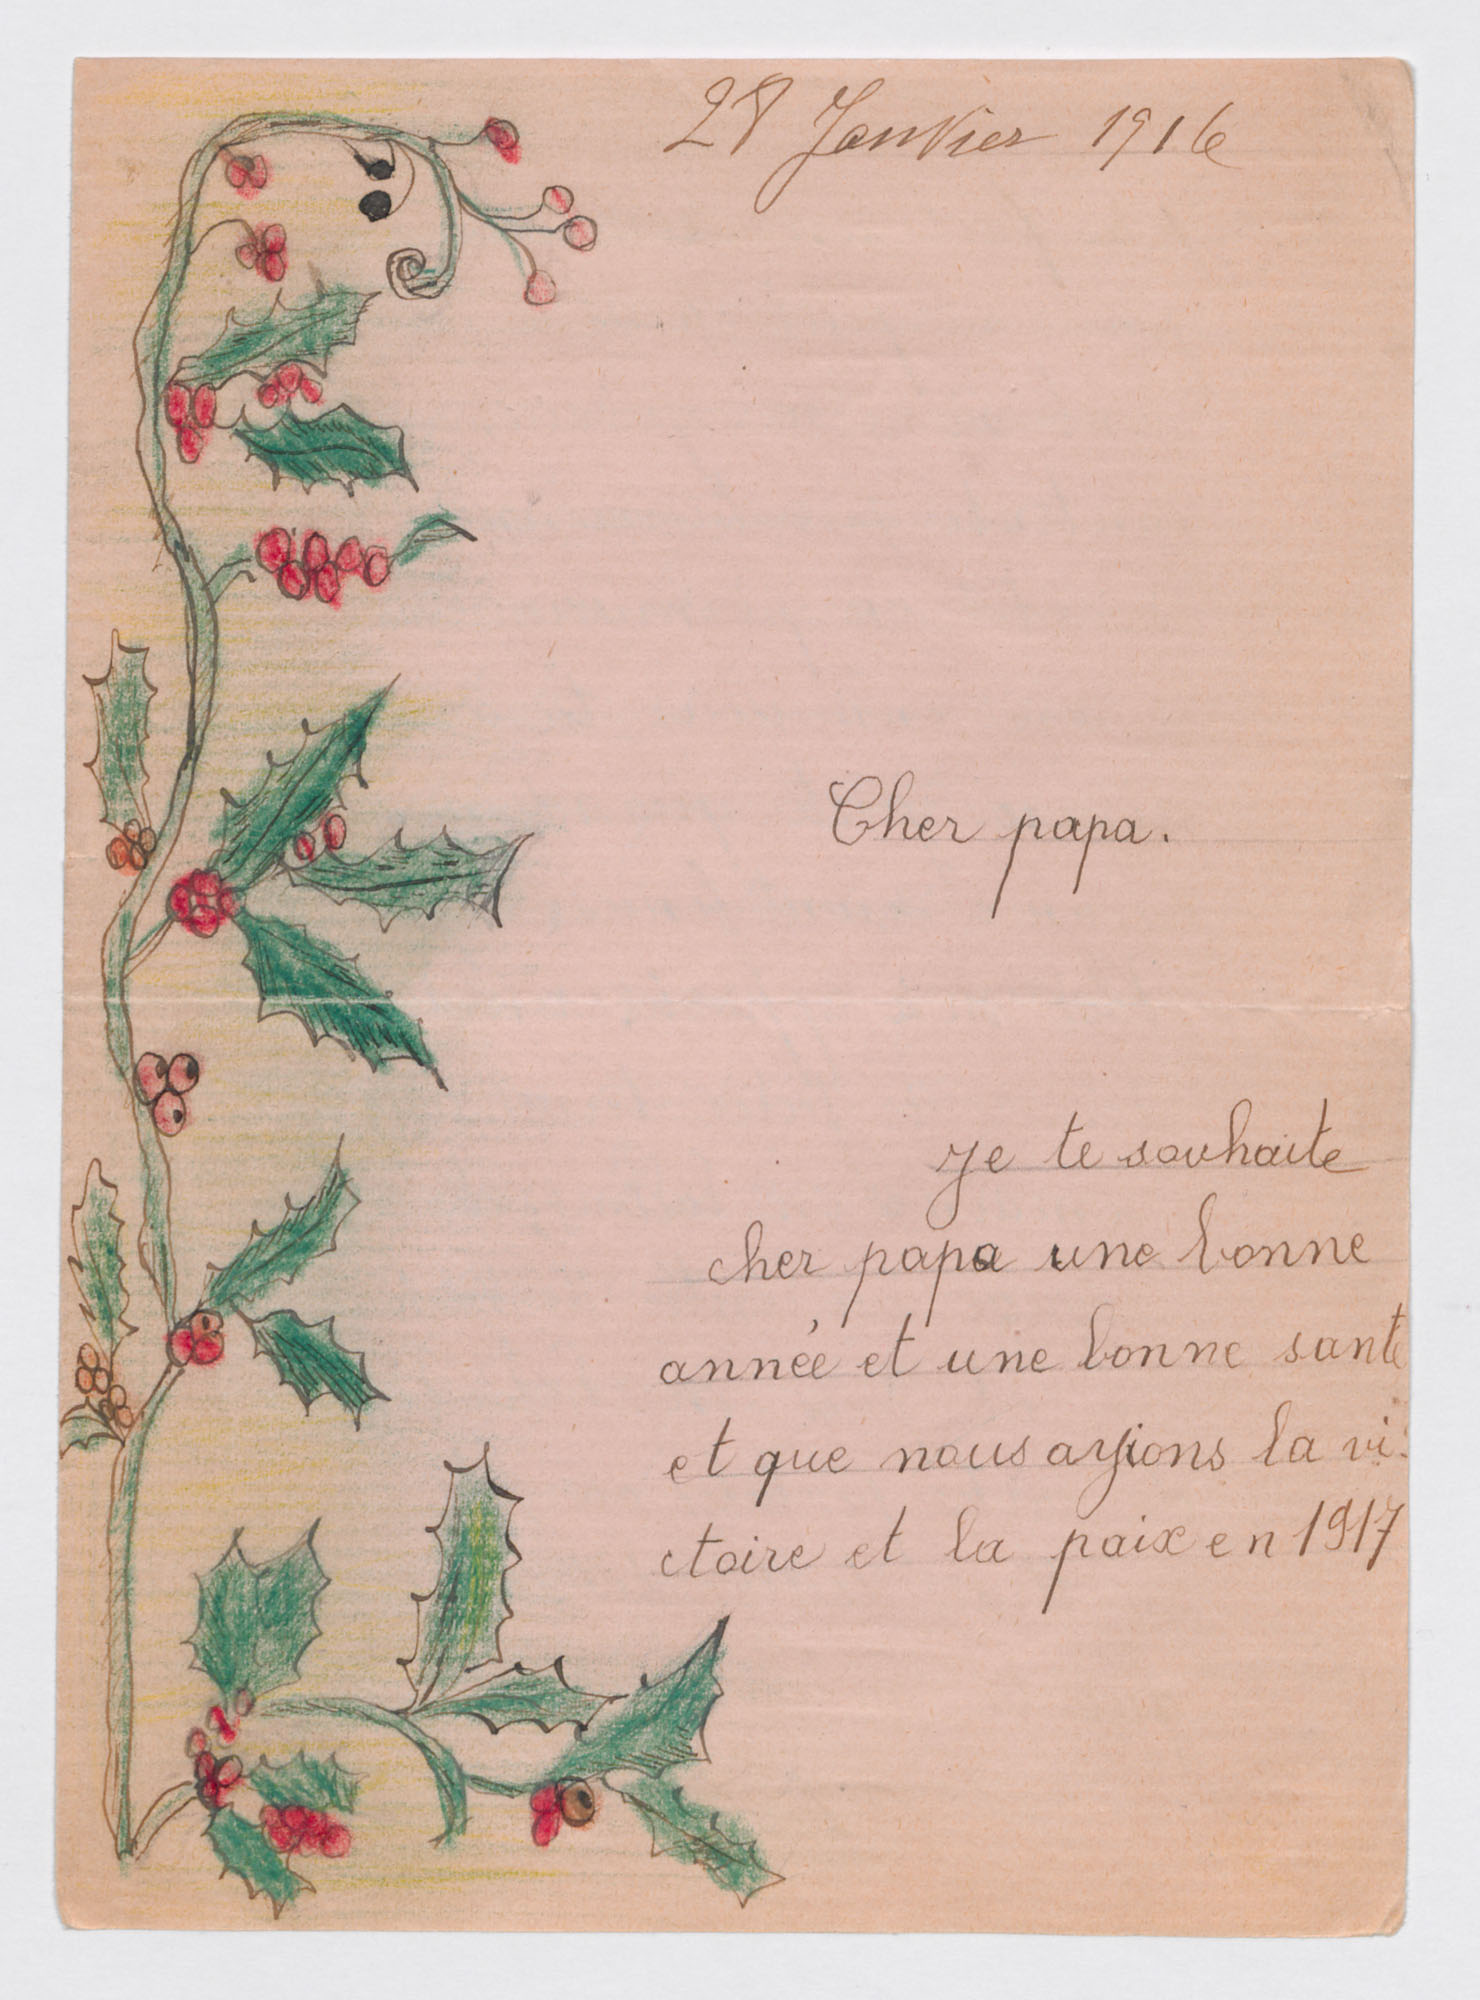 28 Janvier 1916
Cher papa.
Je te souhaite
cher papa une bonne
année et une bonne santé
et que nous ayions la vi-
ctoire et la paix en 1917